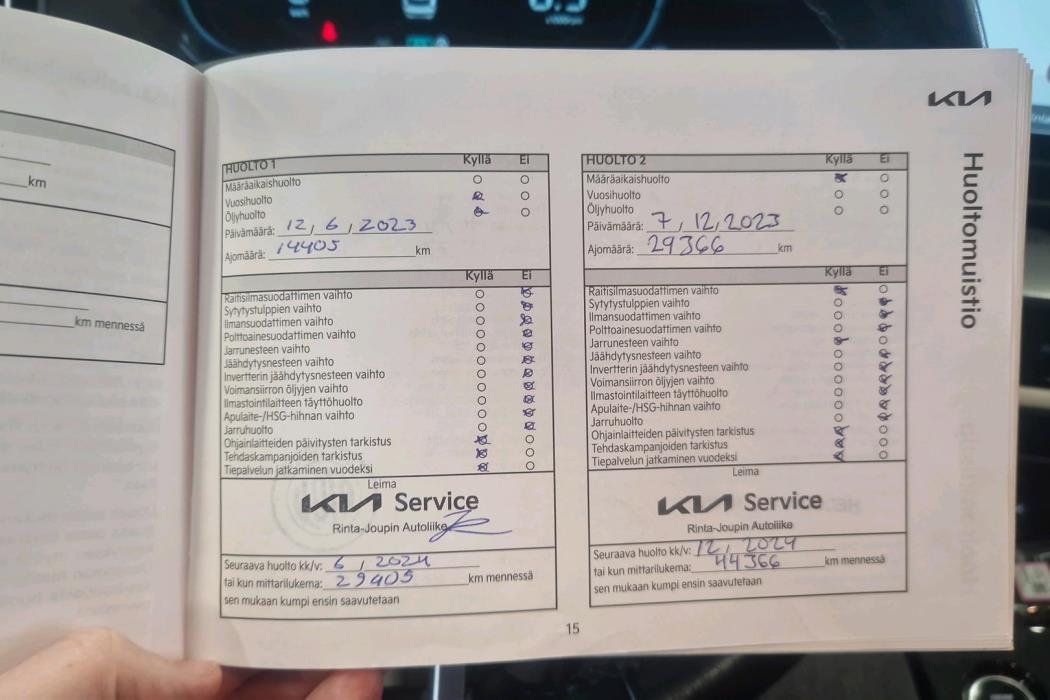 km
km mennessä
KIA
Huoltomuistio
HUOLTO 1 Kyllä Ei
Määräaikaishuolto
Vuosihuolto
Öljyhuolto
Päivämäärä: 12, 6, 2023
Ajomäärä: 14405 km
Kyllä Ei
Raitisilmasuodattimen vaihto
Sytytystulppien vaihto
Ilmansuodattimen vaihto
Polttoainesuodattimen vaihto
Jarrunesteen vaihto
Jäähdytysnesteen vaihto
Invertterin jäähdytysnesteen vaihto
Voimansiirron öljyjen vaihto
Ilmastointilaitteen täyttöhuolto
Apulaite-/HSG-hihnan vaihto
Jarruhuolto
Ohjainlaitteiden päivitysten tarkistus
Tehdaskampanjoiden tarkistus
Tiepalvelun jatkaminen vuodeksi
Leima
KIA Service
Rinta-Joupin Autoliike
Seuraava huolto kk/v: 6, 2024
tai kun mittarilukema: 29405 km mennessä
sen mukaan kumpi ensin saavutetaan
HUOLTO 2 Kyllä Ei
Määräaikaishuolto
Vuosihuolto
Öljyhuolto
Päivämäärä: 7, 12, 2023
Ajomäärä: 29366 km
Kyllä Ei
Raitisilmasuodattimen vaihto
Sytytystulppien vaihto
Ilmansuodattimen vaihto
Polttoainesuodattimen vaihto
Jarrunesteen vaihto
Jäähdytysnesteen vaihto
Invertterin jäähdytysnesteen vaihto
Voimansiirron öljyjen vaihto
Ilmastointilaitteen täyttöhuolto
Apulaite-/HSG-hihnan vaihto
Jarruhuolto
Ohjainlaitteiden päivitysten tarkistus
Tehdaskampanjoiden tarkistus
Tiepalvelun jatkaminen vuodeksi
Leima
KIA Service
Rinta-Joupin Autoliike
Seuraava huolto kk/v: 12, 2024
tai kun mittarilukema: 44366 km mennessä
sen mukaan kumpi ensin saavutetaan
15